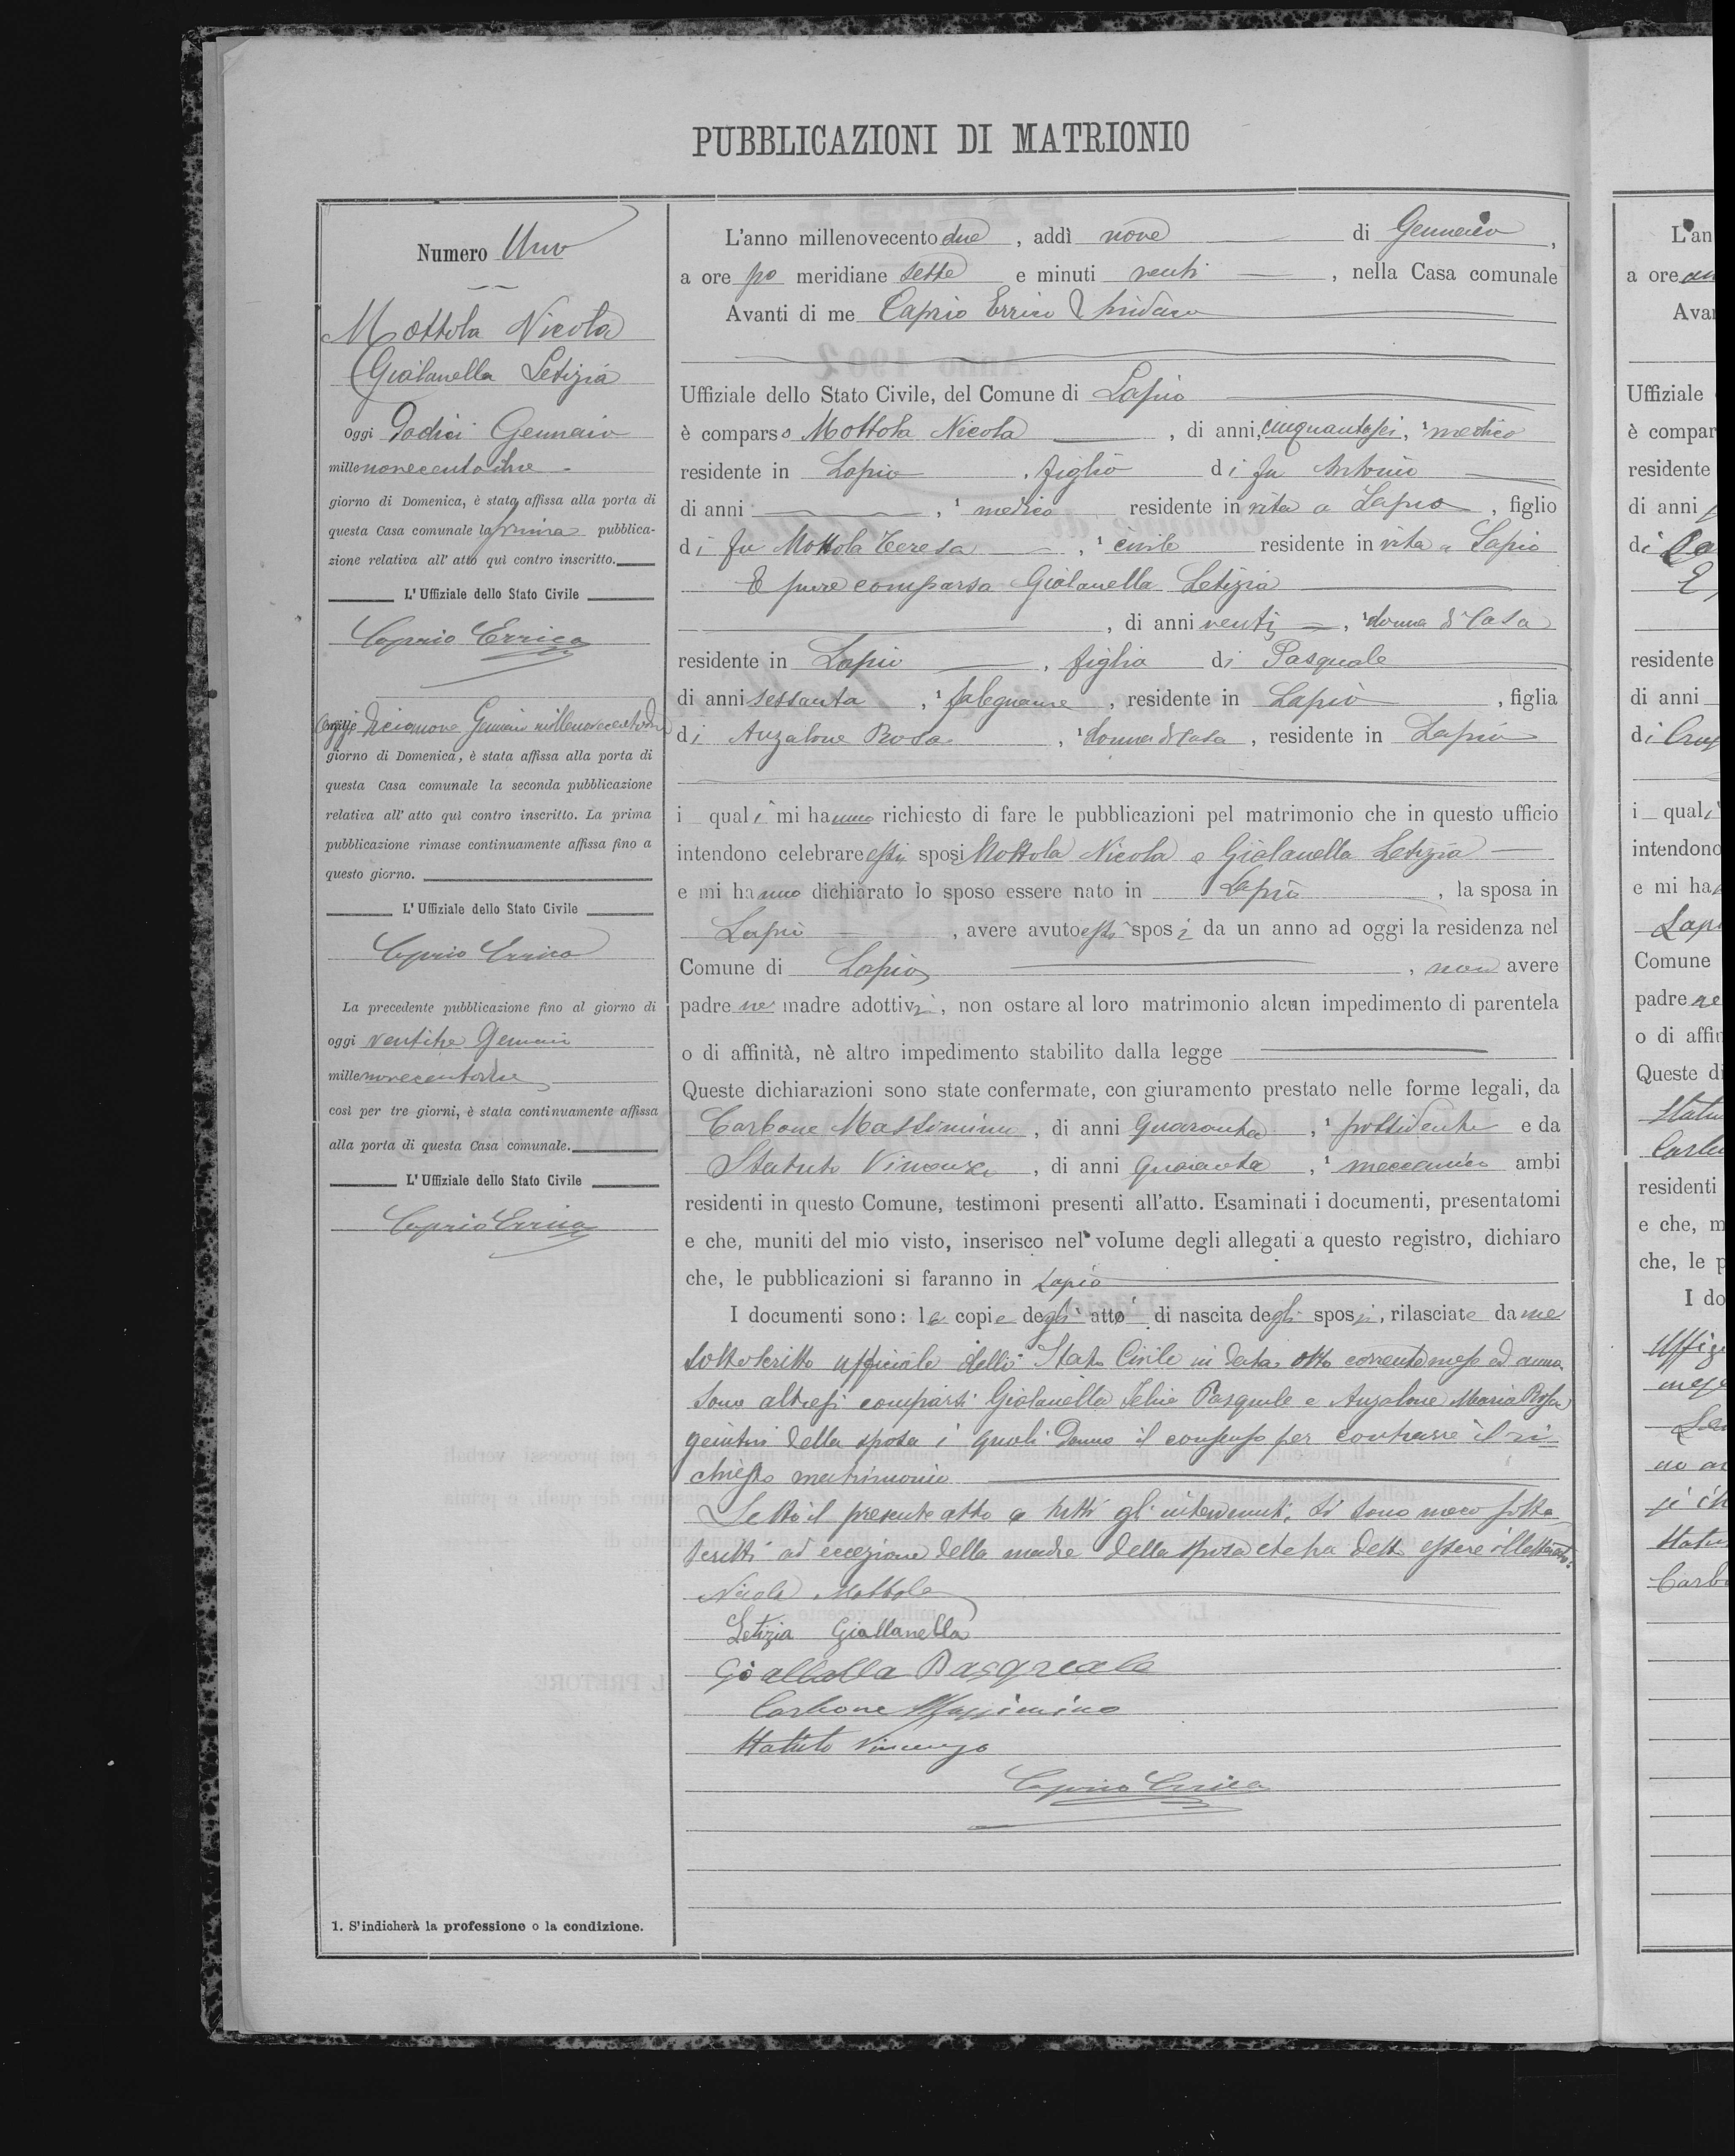 PUBBLICAZIONI DI MATRIONIO
Numero Uno
Mottola Nicola
Gialanella Letizia
Oggi Dodici Gennaio
mille novecentodue
giorno di Domenica, è stata affissa alla porta di
questa Casa comunale la prima pubblica-
zione relativa all' atto quì contro inscritto.
L' Uffiziale dello Stato Civile
Caprio Errico
Oggi diciannove Gennaio millenovecentodue
giorno di Domenica, è stata affissa alla porta di
questa Casa comunale la seconda pubblicazione
relativa all' atto quì contro inscritto. La prima
pubblicazione rimase continuamente affissa fino a
questo giorno.
L' Uffiziale dello Stato Civile
Caprio Errico
La precedente pubblicazione fino al giorno di
oggi ventitre Gennaio
mille novecentodue
così per tre giorni, è stata continuamente affissa
alla porta di questa Casa comunale.
L' Uffiziale dello Stato Civile
Caprio Errico
1. S'indicherà la professione o la condizione.
L'anno millenovecento due, addì nove di Gennaio,
a ore po meridiane sette e minuti venti, nella Casa comunale
Avanti di me Caprio Errico Sindaco
Uffiziale dello Stato Civile, del Comune di Lapio
è comparso Mottola Nicola, di anni, cinquantasei, 1 medico
residente in Lapio, figlio di fu Antonio
di anni , 1 medico residente in vita a Lapio, figlio
di fu Mottola Teresa, 1 civile residente in vita a Lapio
E pure comparsa Gialanella Letizia
, di anni venti, 1 donna di casa
residente in Lapio, figlia di Pasquale
di anni sessanta, 1 falegname, residente in Lapio, figlia
di Anzalone Rosa, 1 donna di casa, residente in Lapio
i quali mi hanno richiesto di fare le pubblicazioni pel matrimonio che in questo ufficio
intendono celebrare essi sposi Mottola Nicola e Gialanella Letizia
e mi hanno dichiarato lo sposo essere nato in Lapio, la sposa in
Lapio, avere avuto essi sposi da un anno ad oggi la residenza nel
Comune di Lapio, non avere
padre ne madre adottivi, non ostare al loro matrimonio alcun impedimento di parentela
o di affinità, nè altro impedimento stabilito dalla legge
Queste dichiarazioni sono state confermate, con giuramento prestato nelle forme legali, da
Carbone Massimino, di anni quaranta, 1 possidente e da
Statuto Vincenzo, di anni quaranta, 1 meccanico ambi
residenti in questo Comune, testimoni presenti all'atto. Esaminati i documenti, presentatomi
e che, muniti del mio visto, inserisco nel volume degli allegati a questo registro, dichiaro
che, le pubblicazioni si faranno in Lapio
I documenti sono: le copie degli atti di nascita degli sposi, rilasciate da me
sottoscritto ufficiale dello Stato Civile in data otto corrente mese ed anno
Sono altresì comparsi Gialanella Pasquale e Anzalone Maria Rosa
genitori della sposa i quali danno il consenso per contrarre il ri=
chiesto matrimonio
Letto il presente atto a tutti gli intervenuti, si sono meco sotto
scritti ad eccezione della madre della sposa che ha detto essere illetterata.
Nicola Mottola
Letizia Giallanella
Pasquale
Carbone Massimino
Statuto Vincenzo
Caprio Errico
L'an
a ore
Avan
Uffiziale
è compar
residente
di anni
di
residente
di anni
di
i quali
intendono
e mi ha
Lapi
Comune
padre ne
o di affin
Queste di
Statu
Carbo
residenti
e che, m
che, le p
I do
Uffizi
Statu
Carbo